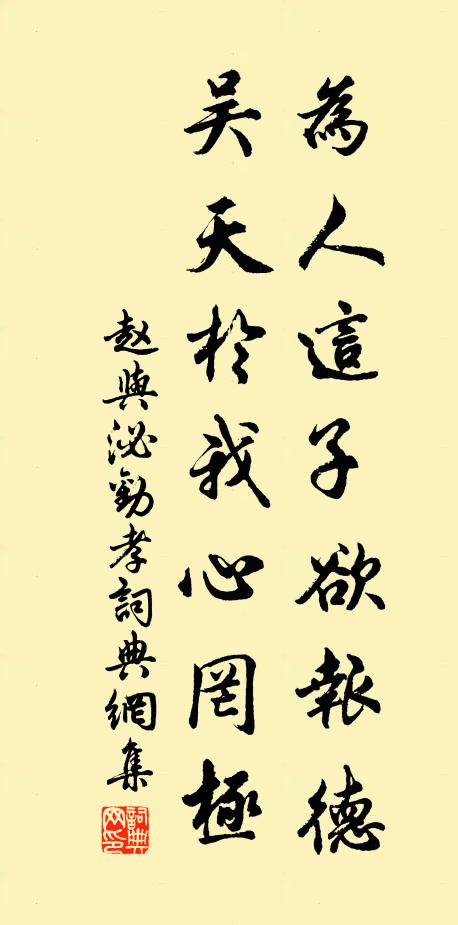 為人這子欲報德
吴天於我心罔極
赵與泌勸孝詞典網集
詞典网印